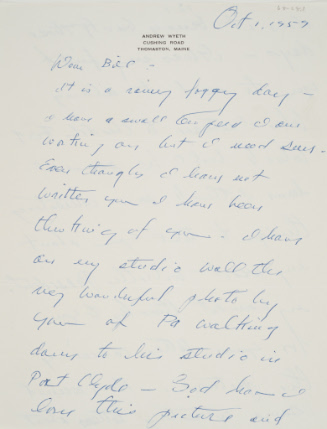 Oct 1, 1957
ANDREW WYETH
CUSHING ROAD
THOMASTON, MAINE
Dear Bill -
It is a rainy foggy day -
I have a small tempera I am
working on but I need sun.
Even though I have not
written you I have been
thinking of you - I have
on my studio wall the
very wonderful photo by
you of Pa walking
down to his studio in
Port Clyde - God how I
love this picture and